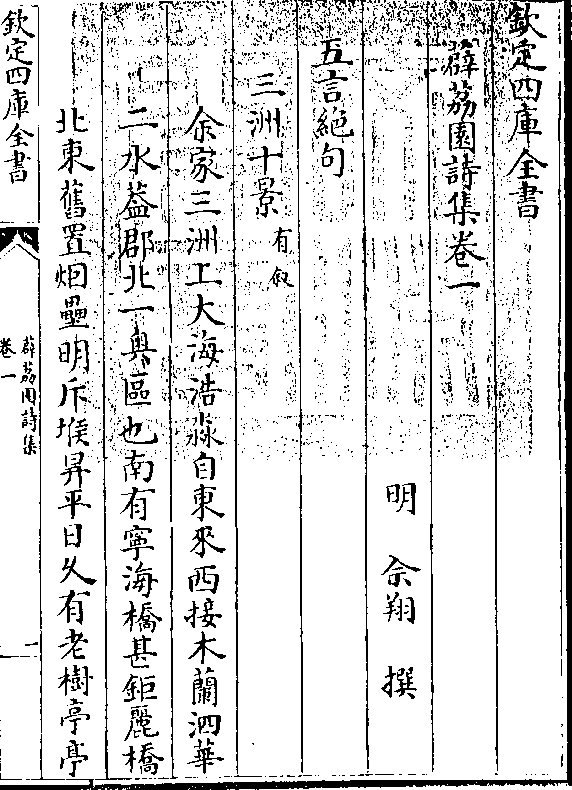 欽定四庫全書
薜荔園詩集卷一
明 佘翔 撰
五言絕句
三洲十景有叙
余家三洲上大海浩淼自東來西接木蘭泗華
二水葢郡北一奥區也南有寧海橋甚鉅麗橋
北東舊置烟壘明斥堠昇平日久有老樹亭亭
欽定四庫全書
薜荔園詩集
卷一
一